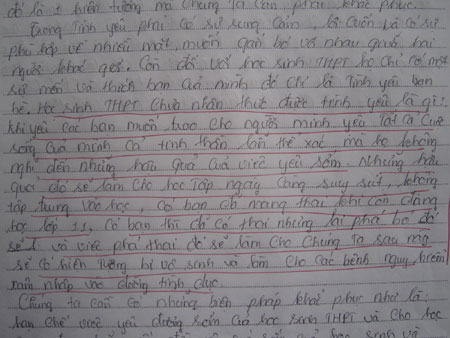 đó là 1 hiện tượng mà chúng ta cần phải khắc phục.
Trong Tình yêu phải có sự rung Cảm, lôi Cuốn và có sự
phù hợp về nhiều mặt, muốn gắn bó với nhau giữa hai
người khác giới. Còn đối với học sinh THPT họ chỉ có một
sự mến và thích bạn của mình đó chỉ là Tình yêu bạn
bè. Học sinh THPT Chưa nhận thức được tình yêu là gì:
khi yêu các bạn muốn trao Cho người mình yêu Tất Cả Cuộc
sống Của mình Cả tinh thần lẫn thể xác, mà họ không
nghĩ đến những hậu quả của việc yêu sớm. Những hậu
quả đó sẽ làm cho học Tập ngày Càng suy sút, không
tập trung vào học, có bạn đã mang thai khi còn đang
học lớp 11, có bạn thì đã có thai nhưng lại phá bỏ đi
và việc phá thai đó sẽ làm Cho Chúng Ta sau này
sẽ có hiện Tượng bị vô sinh và làm Cho Các bệnh nguy hiểm
xâm nhập vào đường tình dục.
Chúng ta cần có những biện pháp khắc phục như là:
hạn chế việc yêu đương sớm của học sinh THPT và Cho học